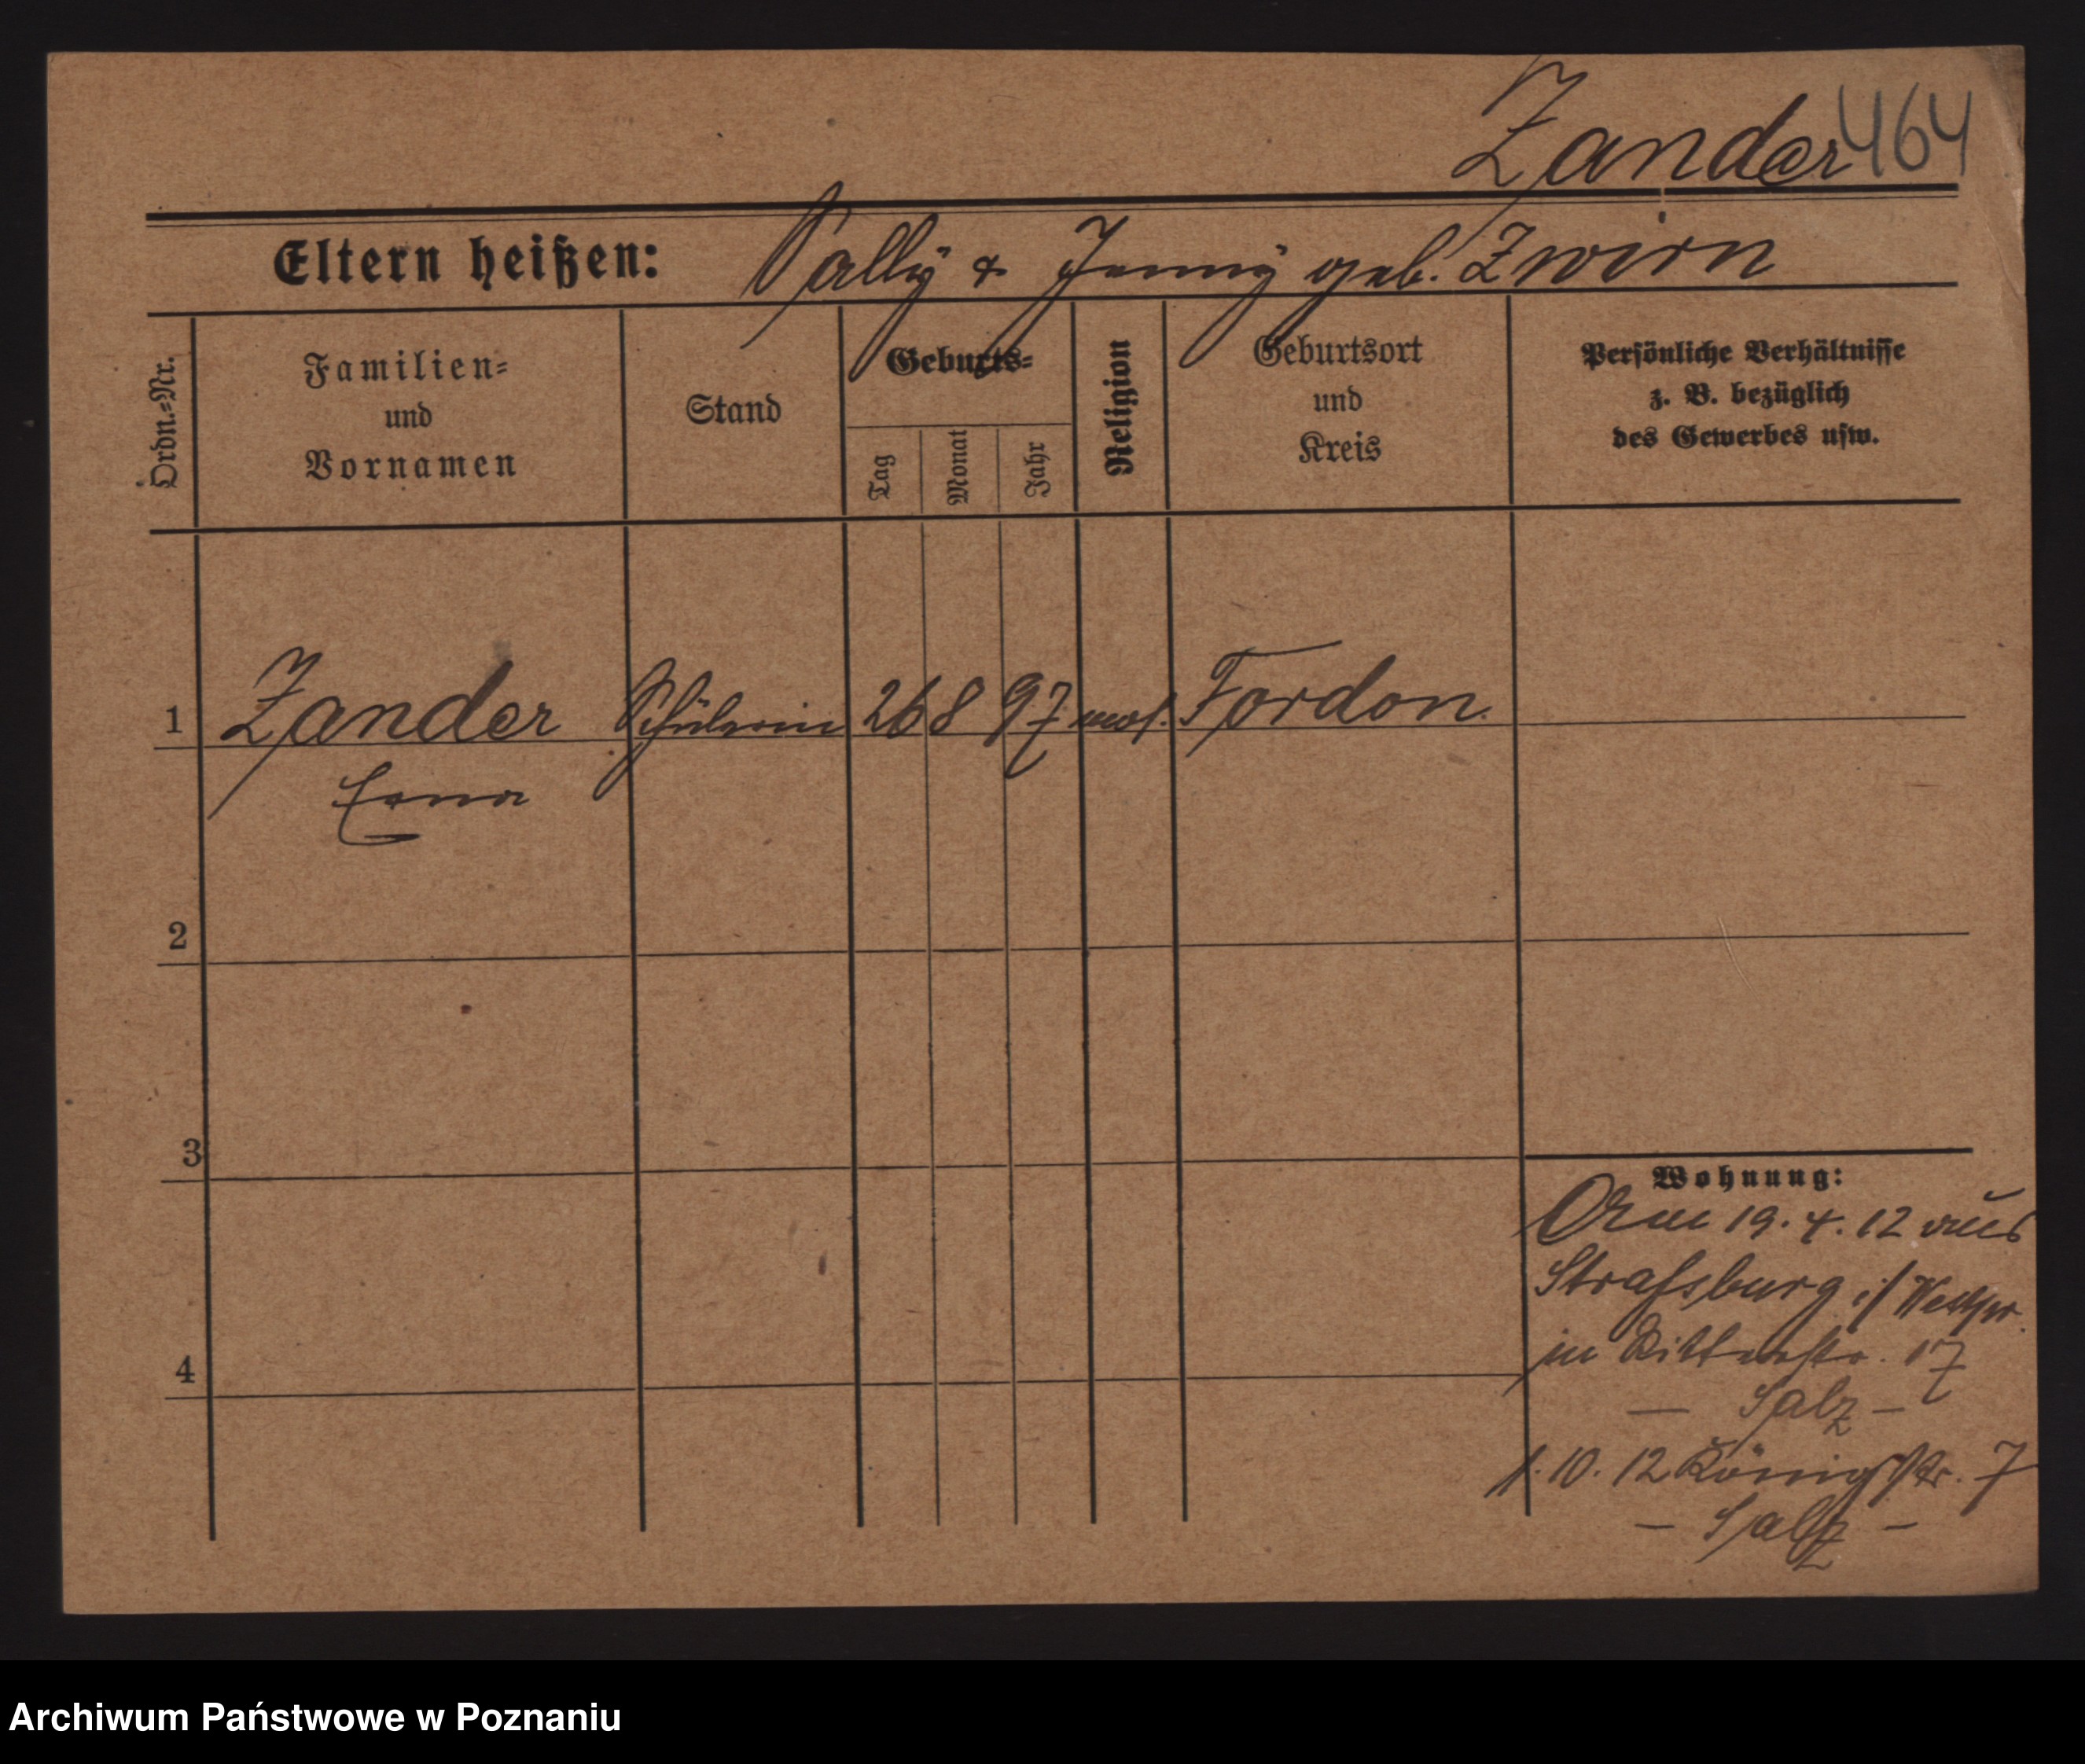 Zander 464
Eltern heißen: Sally & Jenny geb. Zwirn
Ordn.=Nr.
Familien=
und
Vornamen
Stand
Geburts=
Tag
Monat
Jahr
Religion
Geburtsort
und
Kreis
Persönliche Verhältnisse
z. B. bezüglich
des Gewerbes usw.
1 Zander Schülerin 26 8 97 mos. Fordon.
Erna
2
3
4
Wohnung:
19. 4. 12 aus
Strassburg i/ Westpr.
in Ritterstr. 17
— Salz —
1. 10. 12 Königstr. 7
— Salz —
Archiwum Państwowe w Poznaniu